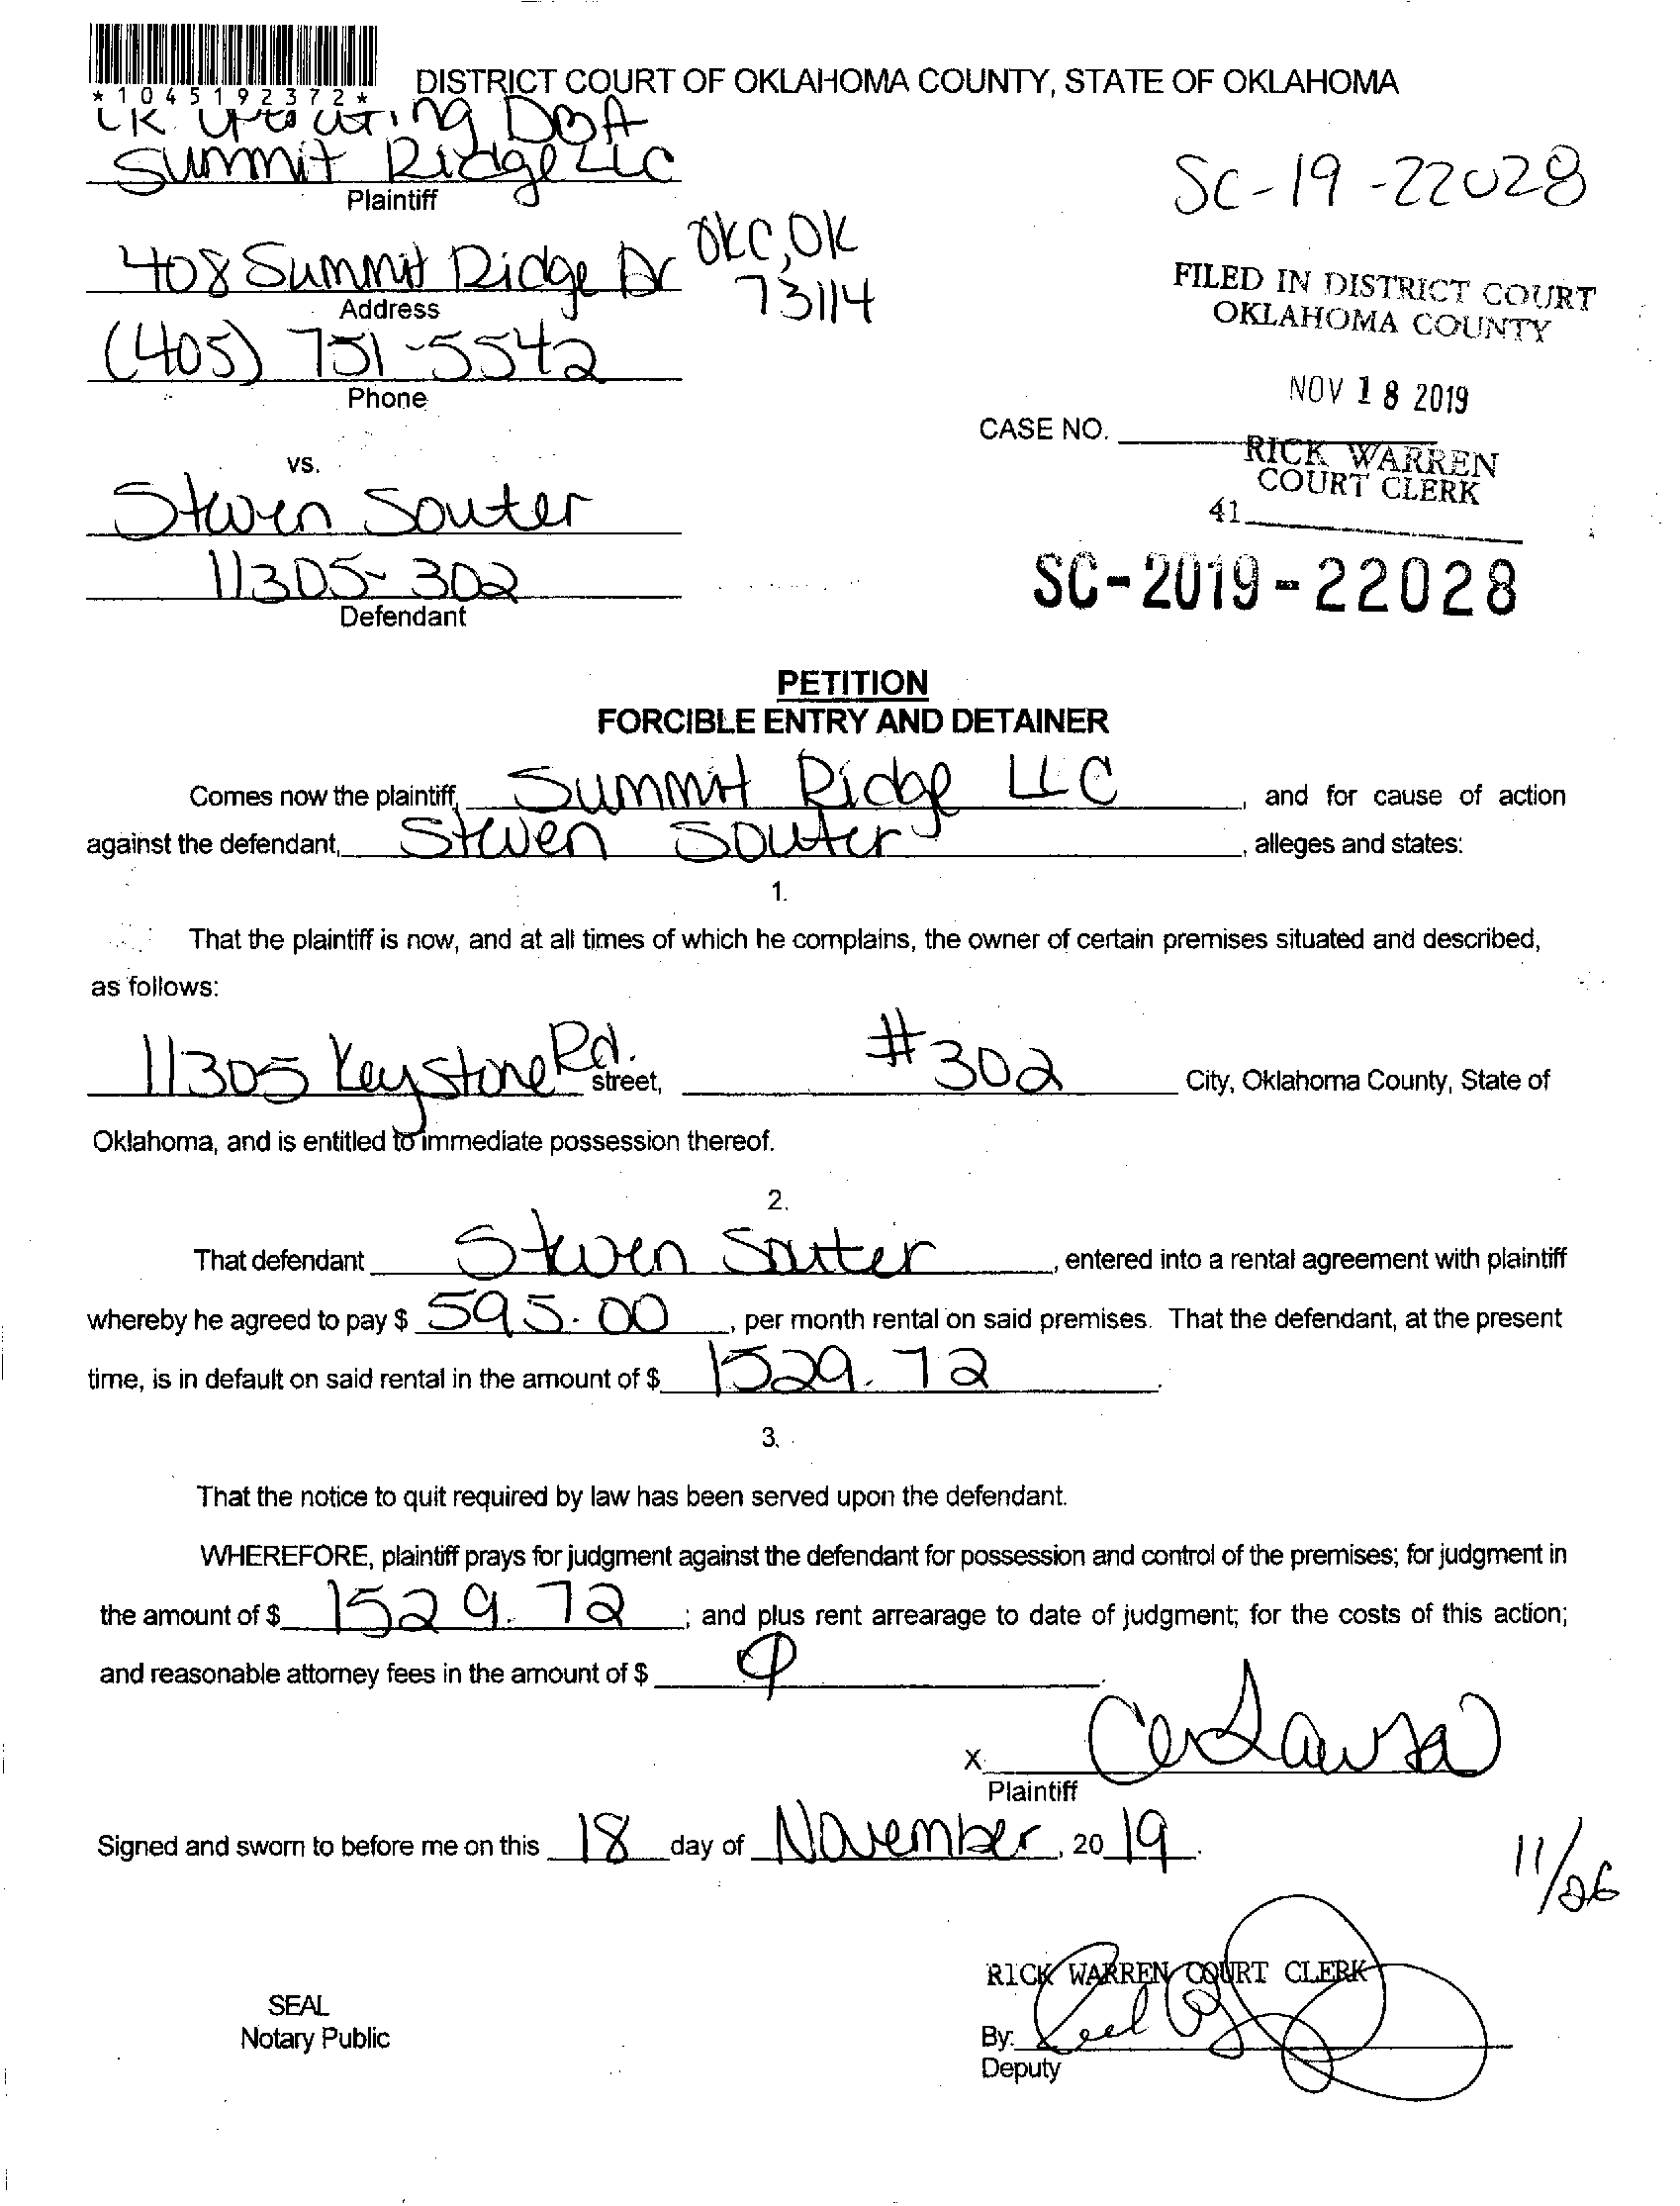 *1045192372*
DISTRICT COURT OF OKLAHOMA COUNTY, STATE OF OKLAHOMA
LK Operating DBA
Summit Ridge LLC
Plaintiff
SC-19-22028
408 Summit Ridge Dr OKC, OK
73114
Address
FILED IN DISTRICT COURT
OKLAHOMA COUNTY
(405) 751-5542
Phone
NOV 18 2019
CASE NO.
RICK WARREN
COURT CLERK
41
vs.
Steven Souter
11305-302
Defendant
SC-2019-22028
PETITION
FORCIBLE ENTRY AND DETAINER
Comes now the plaintiff, Summit Ridge LLC, and for cause of action
against the defendant, Steven Souter, alleges and states:
1.
That the plaintiff is now, and at all times of which he complains, the owner of certain premises situated and described,
as follows:
11305 Keystone Rd. street, #302 City, Oklahoma County, State of
Oklahoma, and is entitled to immediate possession thereof.
2.
That defendant Steven Souter, entered into a rental agreement with plaintiff
whereby he agreed to pay $ 595.00, per month rental on said premises. That the defendant, at the present
time, is in default on said rental in the amount of $ 1529.72.
3.
That the notice to quit required by law has been served upon the defendant.
WHEREFORE, plaintiff prays for judgment against the defendant for possession and control of the premises; for judgment in
the amount of $ 1529.72; and plus rent arrearage to date of judgment; for the costs of this action;
and reasonable attorney fees in the amount of $
X
Plaintiff
Signed and sworn to before me on this 18 day of November, 2019.
11/26
RICK WARREN COURT CLERK
SEAL
Notary Public
By:
Deputy